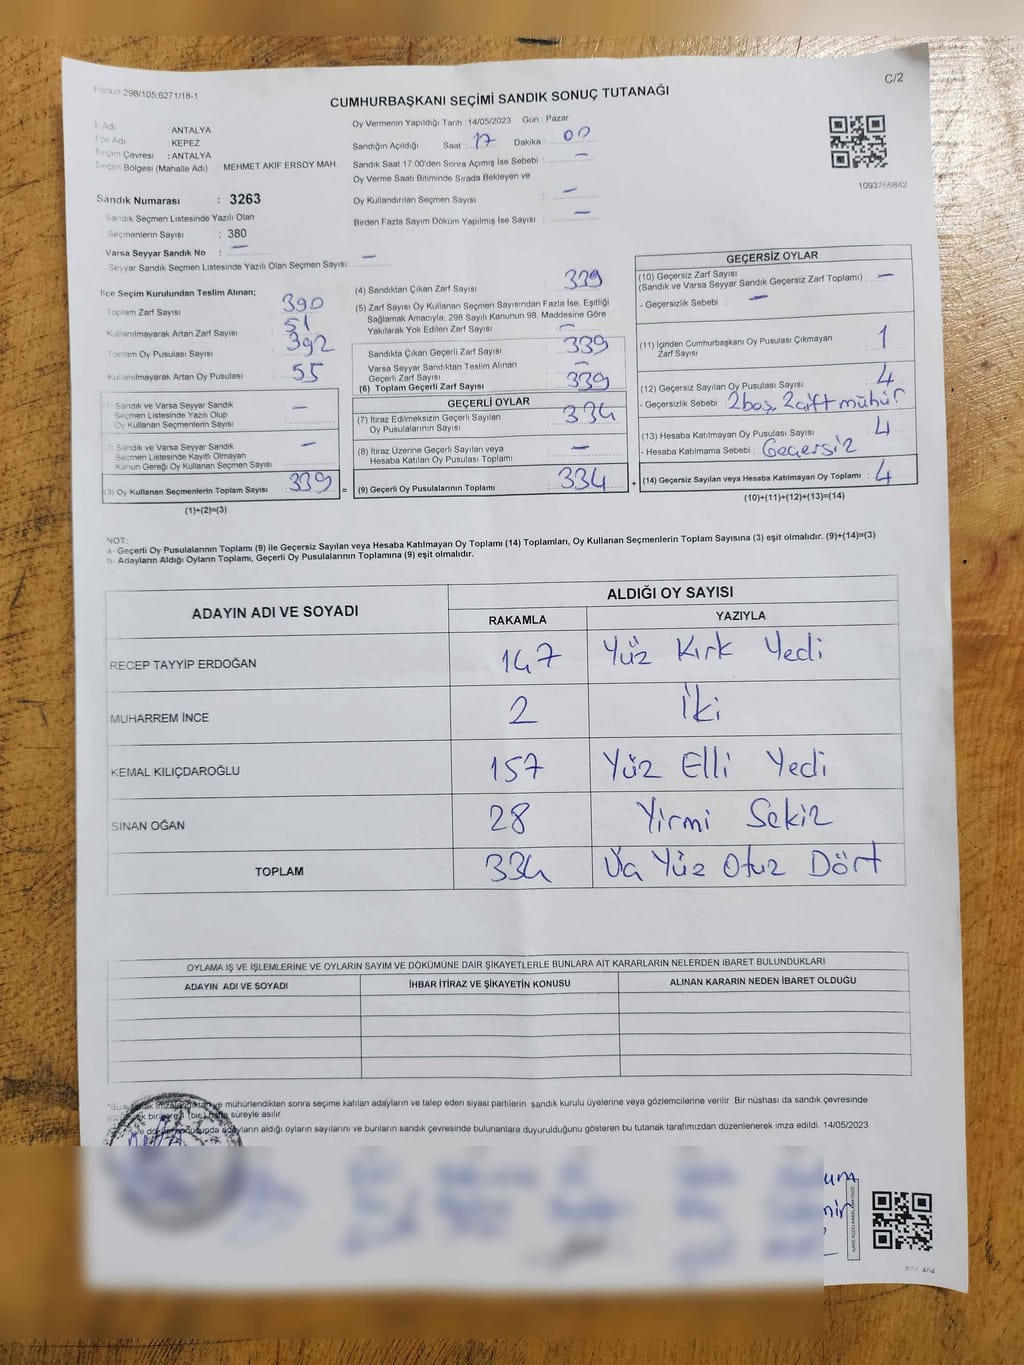 Kanun:298/105;6271/18-1
C/2
CUMHURBAŞKANI SEÇİMİ SANDIK SONUÇ TUTANAĞI
İl Adı : ANTALYA
İlçe Adı : KEPEZ
Seçim Çevresi : ANTALYA
Seçim Bölgesi (Mahalle Adı) : MEHMET AKIF ERSOY MAH.
Sandık Numarası : 3263
Sandık Seçmen Listesinde Yazılı Olan
Seçmenlerin Sayısı : 380
Varsa Seyyar Sandık No : —
Seyyar Sandık Seçmen Listesinde Yazılı Olan Seçmen Sayısı: —
Oy Vermenin Yapıldığı Tarih :14/05/2023 Gün : Pazar
Sandığın Açıldığı Saat : 17 Dakika : 00
Sandık Saat 17.00'den Sonra Açımış İse Sebebi : —
Oy Verme Saati Bitiminde Sırada Bekleyen ve
Oy Kullandırılan Seçmen Sayısı : —
Birden Fazla Sayım Döküm Yapılmış İse Sayısı : —
1093766842
İlçe Seçim Kurulundan Teslim Alınan;
Toplam Zarf Sayısı : 390
Kullanılmayarak Artan Zarf Sayısı : 51
Toplam Oy Pusulası Sayısı : 392
Kullanılmayarak Artan Oy Pusulası : 55
(1) Sandık ve Varsa Seyyar Sandık
Seçmen Listesinde Yazılı Olup
Oy Kullanan Seçmenlerin Sayısı : —
(2) Sandık ve Varsa Seyyar Sandık
Seçmen Listesinde Kayıtlı Olmayan
Kanun Gereği Oy Kullanan Seçmen Sayısı : —
(3) Oy Kullanan Seçmenlerin Toplam Sayısı : 339 =
(1)+(2)=(3)
(4) Sandıktan Çıkan Zarf Sayısı : 339
(5) Zarf Sayısı Oy Kullanan Seçmen Sayısından Fazla İse, Eşitliği
Sağlamak Amacıyla; 298 Sayılı Kanunun 98. Maddesine Göre
Yakılarak Yok Edilen Zarf Sayısı : —
Sandıkta Çıkan Geçerli Zarf Sayısı : 339
Varsa Seyyar Sandıktan Teslim Alınan
Geçerli Zarf Sayısı : —
(6) Toplam Geçerli Zarf Sayısı : 339
GEÇERLİ OYLAR
(7) İtiraz Edilmeksizin Geçerli Sayılan
Oy Pusulalarının Sayısı : 334
(8) İtiraz Üzerine Geçerli Sayılan veya
Hesaba Katılan Oy Pusulası Toplamı : —
(9) Geçerli Oy Pusulalarının Toplamı : 334 +
GEÇERSİZ OYLAR
(10) Geçersiz Zarf Sayısı : —
(Sandık ve Varsa Seyyar Sandık Geçersiz Zarf Toplamı)
- Geçersizlik Sebebi : —
(11) İçinden Cumhurbaşkanı Oy Pusulası Çıkmayan
Zarf Sayısı : 1
(12) Geçersiz Sayılan Oy Pusulası Sayısı : 4
- Geçersizlik Sebebi : 2boş, 2çift mühür
(13) Hesaba Katılmayan Oy Pusulası Sayısı : 4
- Hesaba Katılmama Sebebi : Geçersiz
(14) Geçersiz Sayılan veya Hesaba Katılmayan Oy Toplamı : 4
(10)+(11)+(12)+(13)=(14)
NOT:
a- Geçerli Oy Pusulalarının Toplamı (9) ile Geçersiz Sayılan veya Hesaba Katılmayan Oy Toplamı (14) Toplamları, Oy Kullanan Seçmenlerin Toplam Sayısına (3) eşit olmalıdır. (9)+(14)=(3)
b- Adayların Aldığı Oyların Toplamı, Geçerli Oy Pusulalarının Toplamına (9) eşit olmalıdır.
ADAYIN ADI VE SOYADI
ALDIĞI OY SAYISI
RAKAMLA YAZIYLA
RECEP TAYYIP ERDOĞAN 147 Yüz Kırk Yedi
MUHARREM İNCE 2 İki
KEMAL KILIÇDAROĞLU 157 Yüz Elli Yedi
SİNAN OĞAN 28 Yirmi Sekiz
TOPLAM 334 Üç Yüz Otuz Dört
OYLAMA İŞ VE İŞLEMLERİNE VE OYLARIN SAYIM VE DÖKÜMÜNE DAİR ŞİKAYETLERLE BUNLARA AİT KARARLARIN NELERDEN İBARET BULUNDUKLARI
ADAYIN ADI VE SOYADI İHBAR İTİRAZ VE ŞİKAYETİN KONUSU ALINAN KARARIN NEDEN İBARET OLDUĞU
mühürlendikten sonra seçime katılan adayların ve talep eden siyasi partilerin sandık kurulu üyelerine veya gözlemcilerine verilir. Bir nüshası da sandık çevresinde
(bir) hafta süreyle asılır.
adayların aldığı oyların sayılarını ve bunların sandık çevresinde bulunanlara duyurulduğunu gösteren bu tutanak tarafımızdan düzenlenerek imza edildi. 14/05/2023